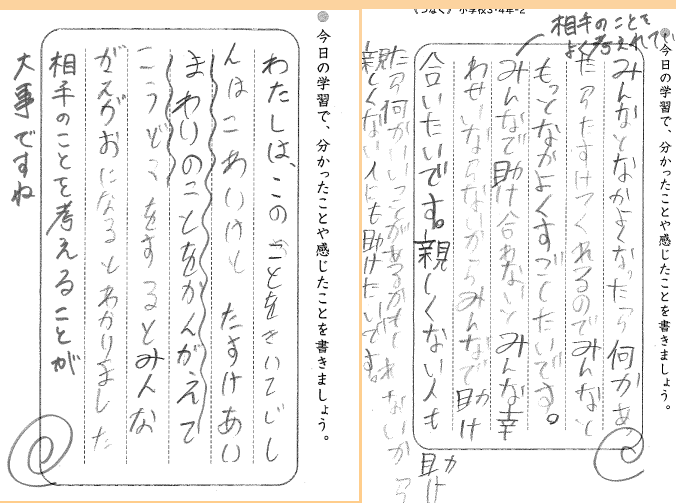 今日の学習で、分かったことや感じたことを書きましょう。
わたしは、このことをきいてじし
んはこわいけど たすけあい
まわりのことをかんがえて
こうどうをするとみんな
がえがおになるとわかりました
相手のことを考えることが
大事ですね
《つなぐ》 小学校3・4年-2
今日の学習で、分かったことや感じたことを書きましょう。
相手のことを
よく考えれてい
みんなとなかよくなったら何かあ
ったらたすけてくれるのでみんなと
もっとなかよくすごしたいです。
みんなで助け合わないとみんな幸
わせいならないからみんなで助け
合いたいです。親しくない人も
助け
たら何かいいことがあるかもしれないから
親しくない人にも助けたいです。